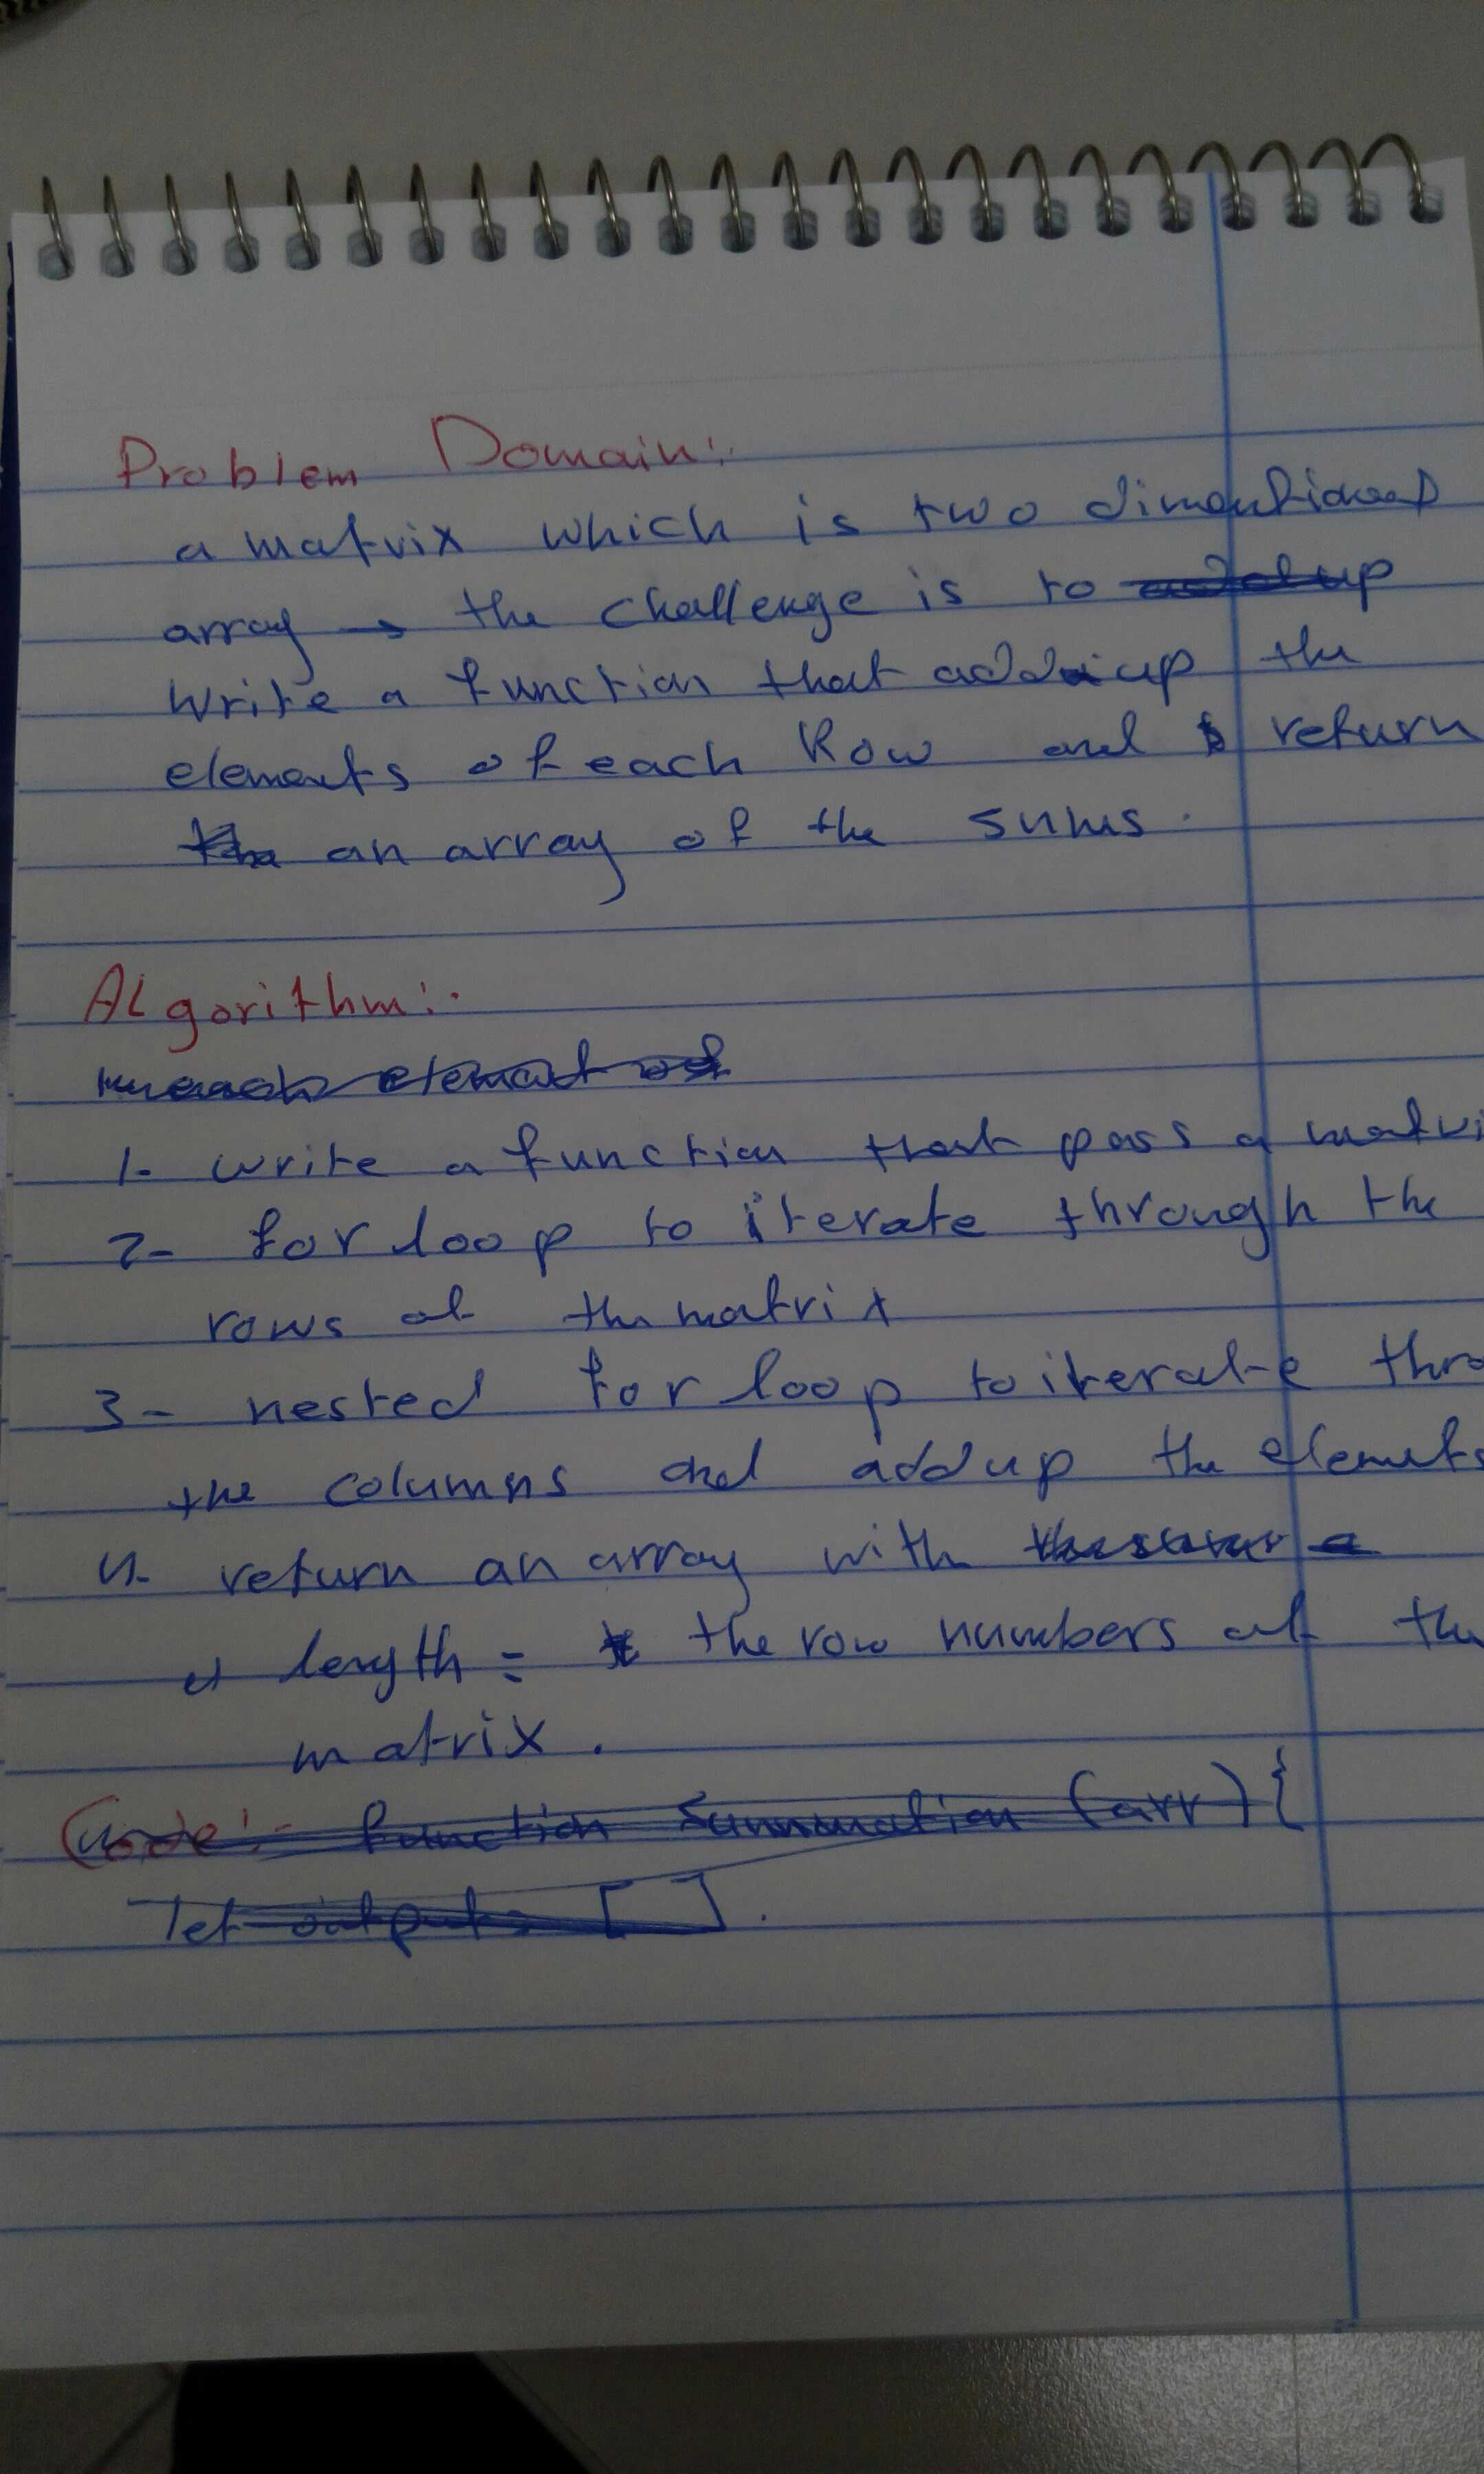 Problem Domain:-
a matrix which is two dimentional
array → the challenge is to add up
Write a function that add up the
elements of each Row and return
the an array of the sums.
ALgorithm:-
element of
1- write a function that pass a matri
2- for loop to iterate through the
rows of the matrix
3- nested for loop to iterate thro
the columns and add up the elements
4- return an array with
a length = the row numbers of the
matrix.
Code:- function Summation (arr) {
let output = [ ].